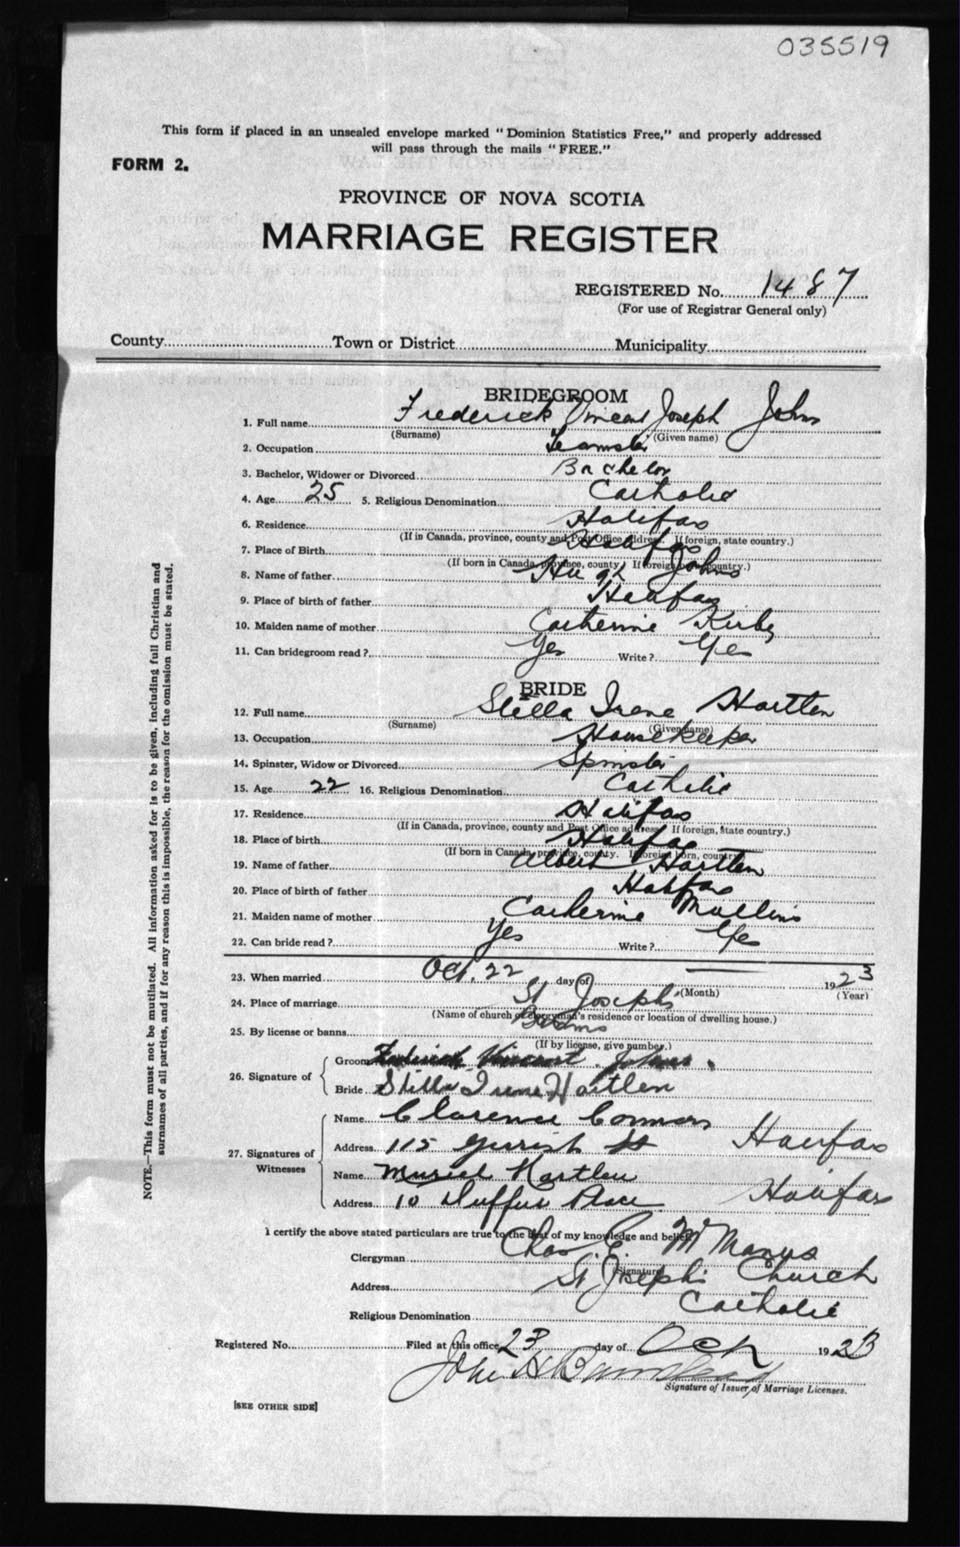 035519
This form if placed in an unsealed envelope marked "Dominion Statistics Free," and properly addressed
will pass through the mails "FREE."
FORM 2.
PROVINCE OF NOVA SCOTIA
MARRIAGE REGISTER
REGISTERED No. 1487
(For use of Registrar General only)
County Town or District Municipality
BRIDEGROOM
1. Full name Frederick Vincent Joseph Johns
(Surname) (Given name)
2. Occupation Teamster
3. Bachelor, Widower or Divorced Bachelor
4. Age 25 5. Religious Denomination Catholic
6. Residence Halifax
(If in Canada, province, county and Post Office address. If foreign, state country.)
7. Place of Birth Halifax
(If born in Canada, province, county. If foreign born, country.)
8. Name of father Hugh Johns
9. Place of birth of father Halifax
10. Maiden name of mother Catherine Kirby
11. Can bridegroom read? Yes Write? Yes
BRIDE
12. Full name Stella Irene Hartlen
(Surname) (Given name)
13. Occupation Housekeeper
14. Spinster, Widow or Divorced Spinster
15. Age 22 16. Religious Denomination Catholic
17. Residence Halifax
(If in Canada, province, county and Post Office address. If foreign, state country.)
18. Place of birth Halifax
(If born in Canada, province, county. If foreign born, country)
19. Name of father Albert Hartlen
20. Place of birth of father Halifax
21. Maiden name of mother Catherine Mullins
22. Can bride read? Yes Write? Yes
23. When married Oct. 22 day of 1923
(Month) (Year)
24. Place of marriage St Joseph's
(Name of church or clergyman's residence or location of dwelling house.)
25. By license or banns Banns
(If by license, give number.)
26. Signature of Groom Frederick Vincent Johns.
Bride Stella Irene Hartlen
27. Signatures of Witnesses Name Clarence Connors
Address 115 Gerrish St Halifax
Name Muriel Hartlen
Address 10 Duffus Place Halifax
I certify the above stated particulars are true to the best of my knowledge and belief.
Clergyman Chas E McManus
Signature
Address St Joseph's Church
Religious Denomination Catholic
Registered No. Filed at this office 23 day of Oct 1923
John H
Signature of Issuer of Marriage Licenses.
[SEE OTHER SIDE]
NOTE.—This form must not be mutilated. All information asked for is to be given, including full Christian and
surnames of all parties, and if for any reason this is impossible, the reason for the omission must be stated.